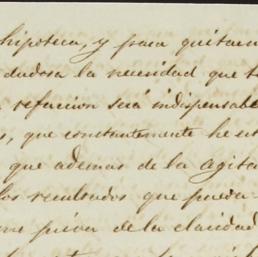 hipoteca, y para quitar
dudosa la necesidad que t
refaccion será indispensable
, que constantemente he
que ademas de la agita
los resultados que pueda
me priva de la claridad